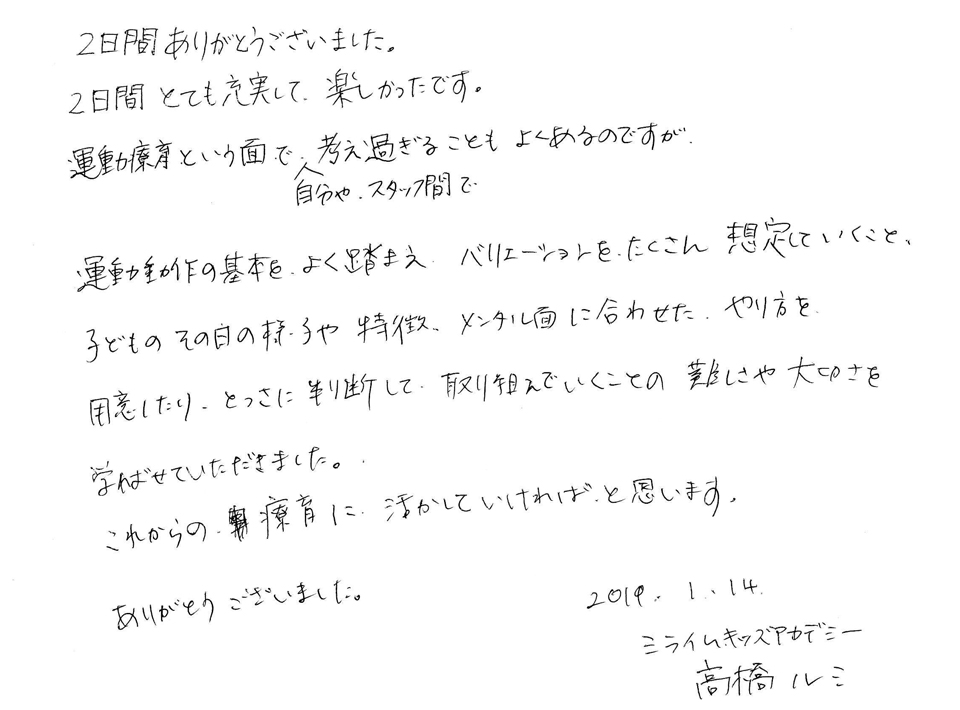 2日間ありがとうございました。
2日間とても充実して、楽しかったです。
運動療育という面で、考え過ぎることもよくあるのですが、
自分や、スタッフ間で
運動動作の基本を、よく踏まえ、バリエーションを、たくさん想定していくこと、
子どものその日の様子や特徴、メンタル面に合わせた、やり方を
用意したり、とっさに判断して、取り組んでいくことの難しさや大切さを
学ばせていただきました。
これからの、療育に、活かしていければ、と思います。
ありがとうございました。
2019.1.14.
ミライムキッズアカデミー
高橋ルミ